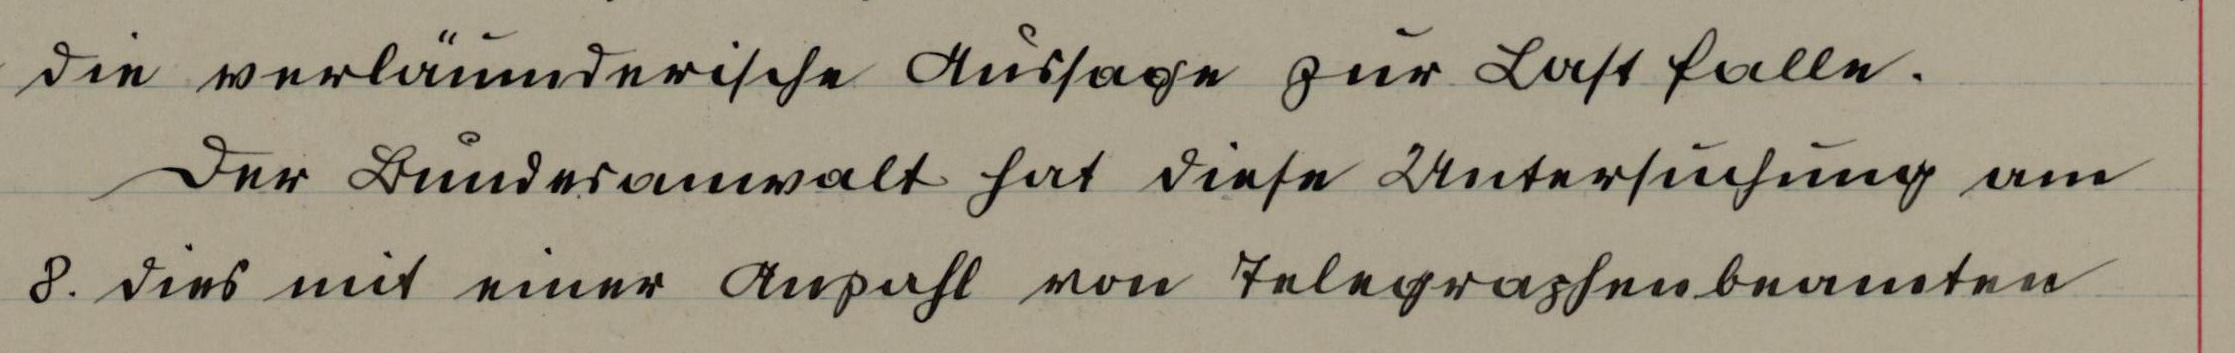 die verläumderische Aussage zur Last falle.
Der Bundesanwalt hat diese Untersuchung am
8. dies mit einer Anzahl von Telegraphenbeamten